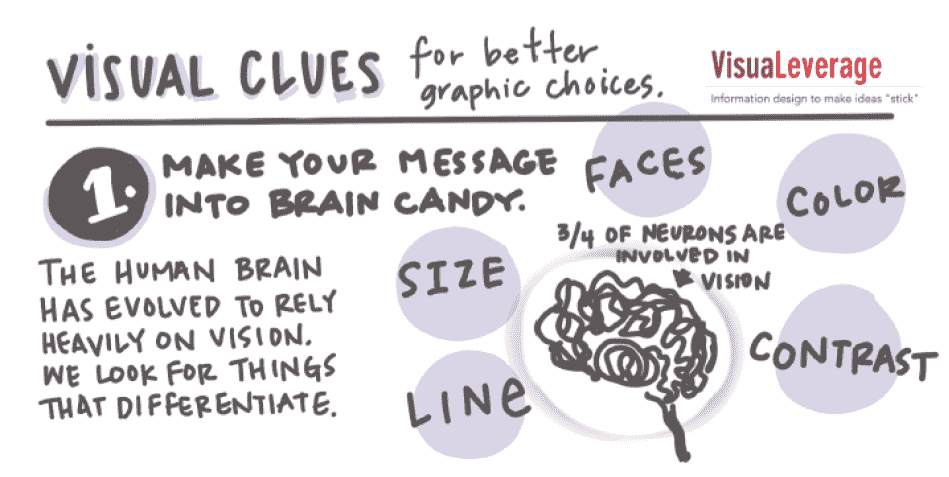 VISUAL CLUES
for better
graphic choices.
VisuaLeverage
Information design to make ideas "stick"
1.
MAKE YOUR MESSAGE
INTO BRAIN CANDY.
THE HUMAN BRAIN
HAS EVOLVED TO RELY
HEAVILY ON VISION.
WE LOOK FOR THINGS
THAT DIFFERENTIATE.
FACES
COLOR
SIZE
3/4 OF NEURONS ARE
INVOLVED IN
VISION
LINE
CONTRAST